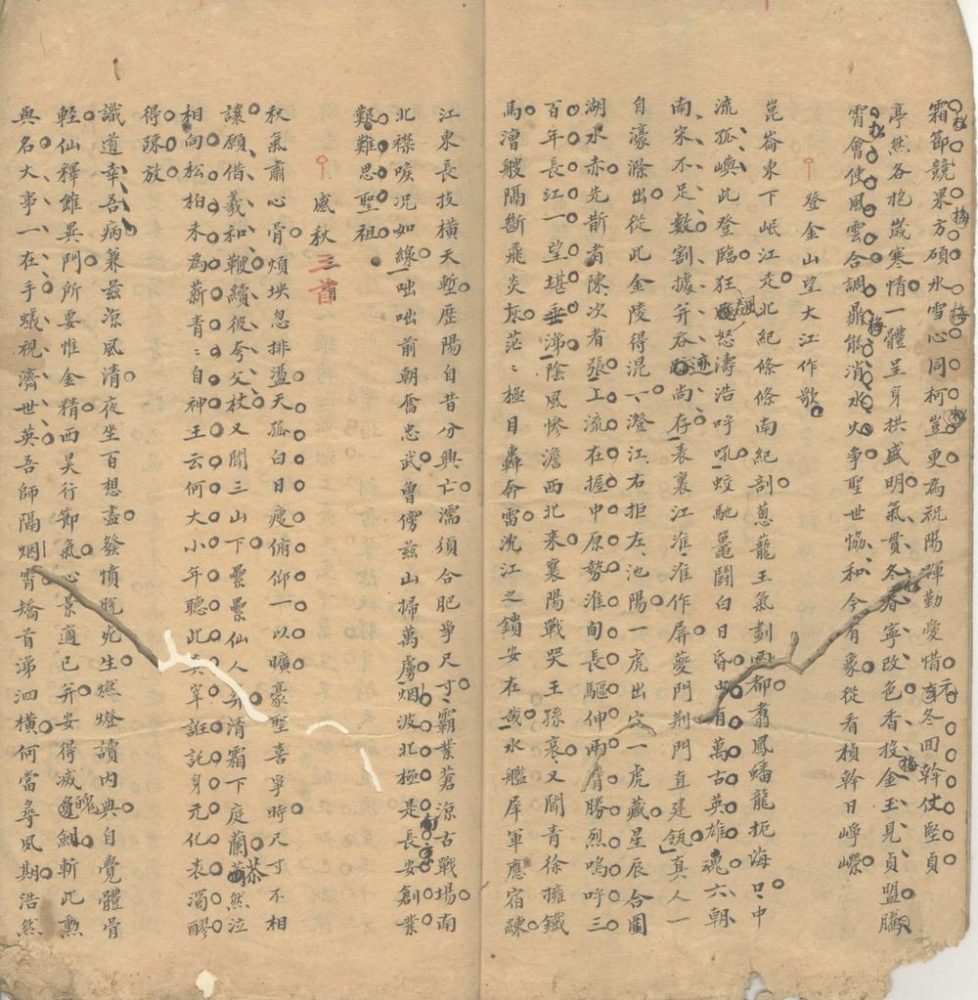 霜節競果方碩氷雪心同柯豈更為祝陽輝勤愛惜元冬回幹仗堅貞
亭然各抱歲寒情一體呈身拱盛明氣貫冬春寧改色香投金玉見貞盟騰
霄會使風雲合調鼎能消水火爭聖世恊和今有象從看楨幹日崢嶸
登金山望大江作歌
崑崙東下岷江走北紀條條南紀剖蔥蘢王氣劃兩都翥鳳蟠龍扼海口中
流孤嶼此登臨狂飊怒濤浩呼吼蛟馳鼉鬪白日昏中有萬古英雄魂六朝
南宋不足數割據并吞迹尚存表裏江淮淮作屏夔門荆門直建瓴真人一
自濠滁出從此金陵得混一澄江右拒左池陽一虎出穴一虎藏星辰合圖
湖水赤先斮者陳次者張上流在握中原勢淮甸長驅伸兩臂勝烈嗚呼三
百年長江一望堪垂涕陰風慘澹西北来襄陽戰哭王孫哀又聞青徐擁鐵
馬漕艘隔斷飛炎灰茫茫極目轟奔雷沈江之鎖安在哉水艦犀軍應宿練
江東長技橫天塹歷陽自昔分興亡濡須合肥爭尺寸霸業蒼涼古戰場南
北襟喉况如線咄咄前朝奮忠武曾慴兹山掃萬虜烟波北極是長安創業
艱難思聖祖
感秋三首
秋氣肅心骨煩坱忽排盪天孤白日瘦俯仰一以曠豪竪喜爭時尺寸不相
讓願借羲和鞭續彼夸父杖又聞三山下纍纍仙人葬清霜下庭蘭恭然泣
相向松柏未為薪青青自神王云何大小年聽此真宰誑託身元化表濁醪
得疎放
識道幸吾病兼兹涼風清夜坐百想盡發憤脫死生燃燈讀內典自覺體骨
輕仙釋雖異門所要惟金精西昊行節氣心景適已并安得滅魄斬此勲
與名大事一在手蟻視濟世英吾師隔烟霄矯首涕泗橫何當尋夙期浩然